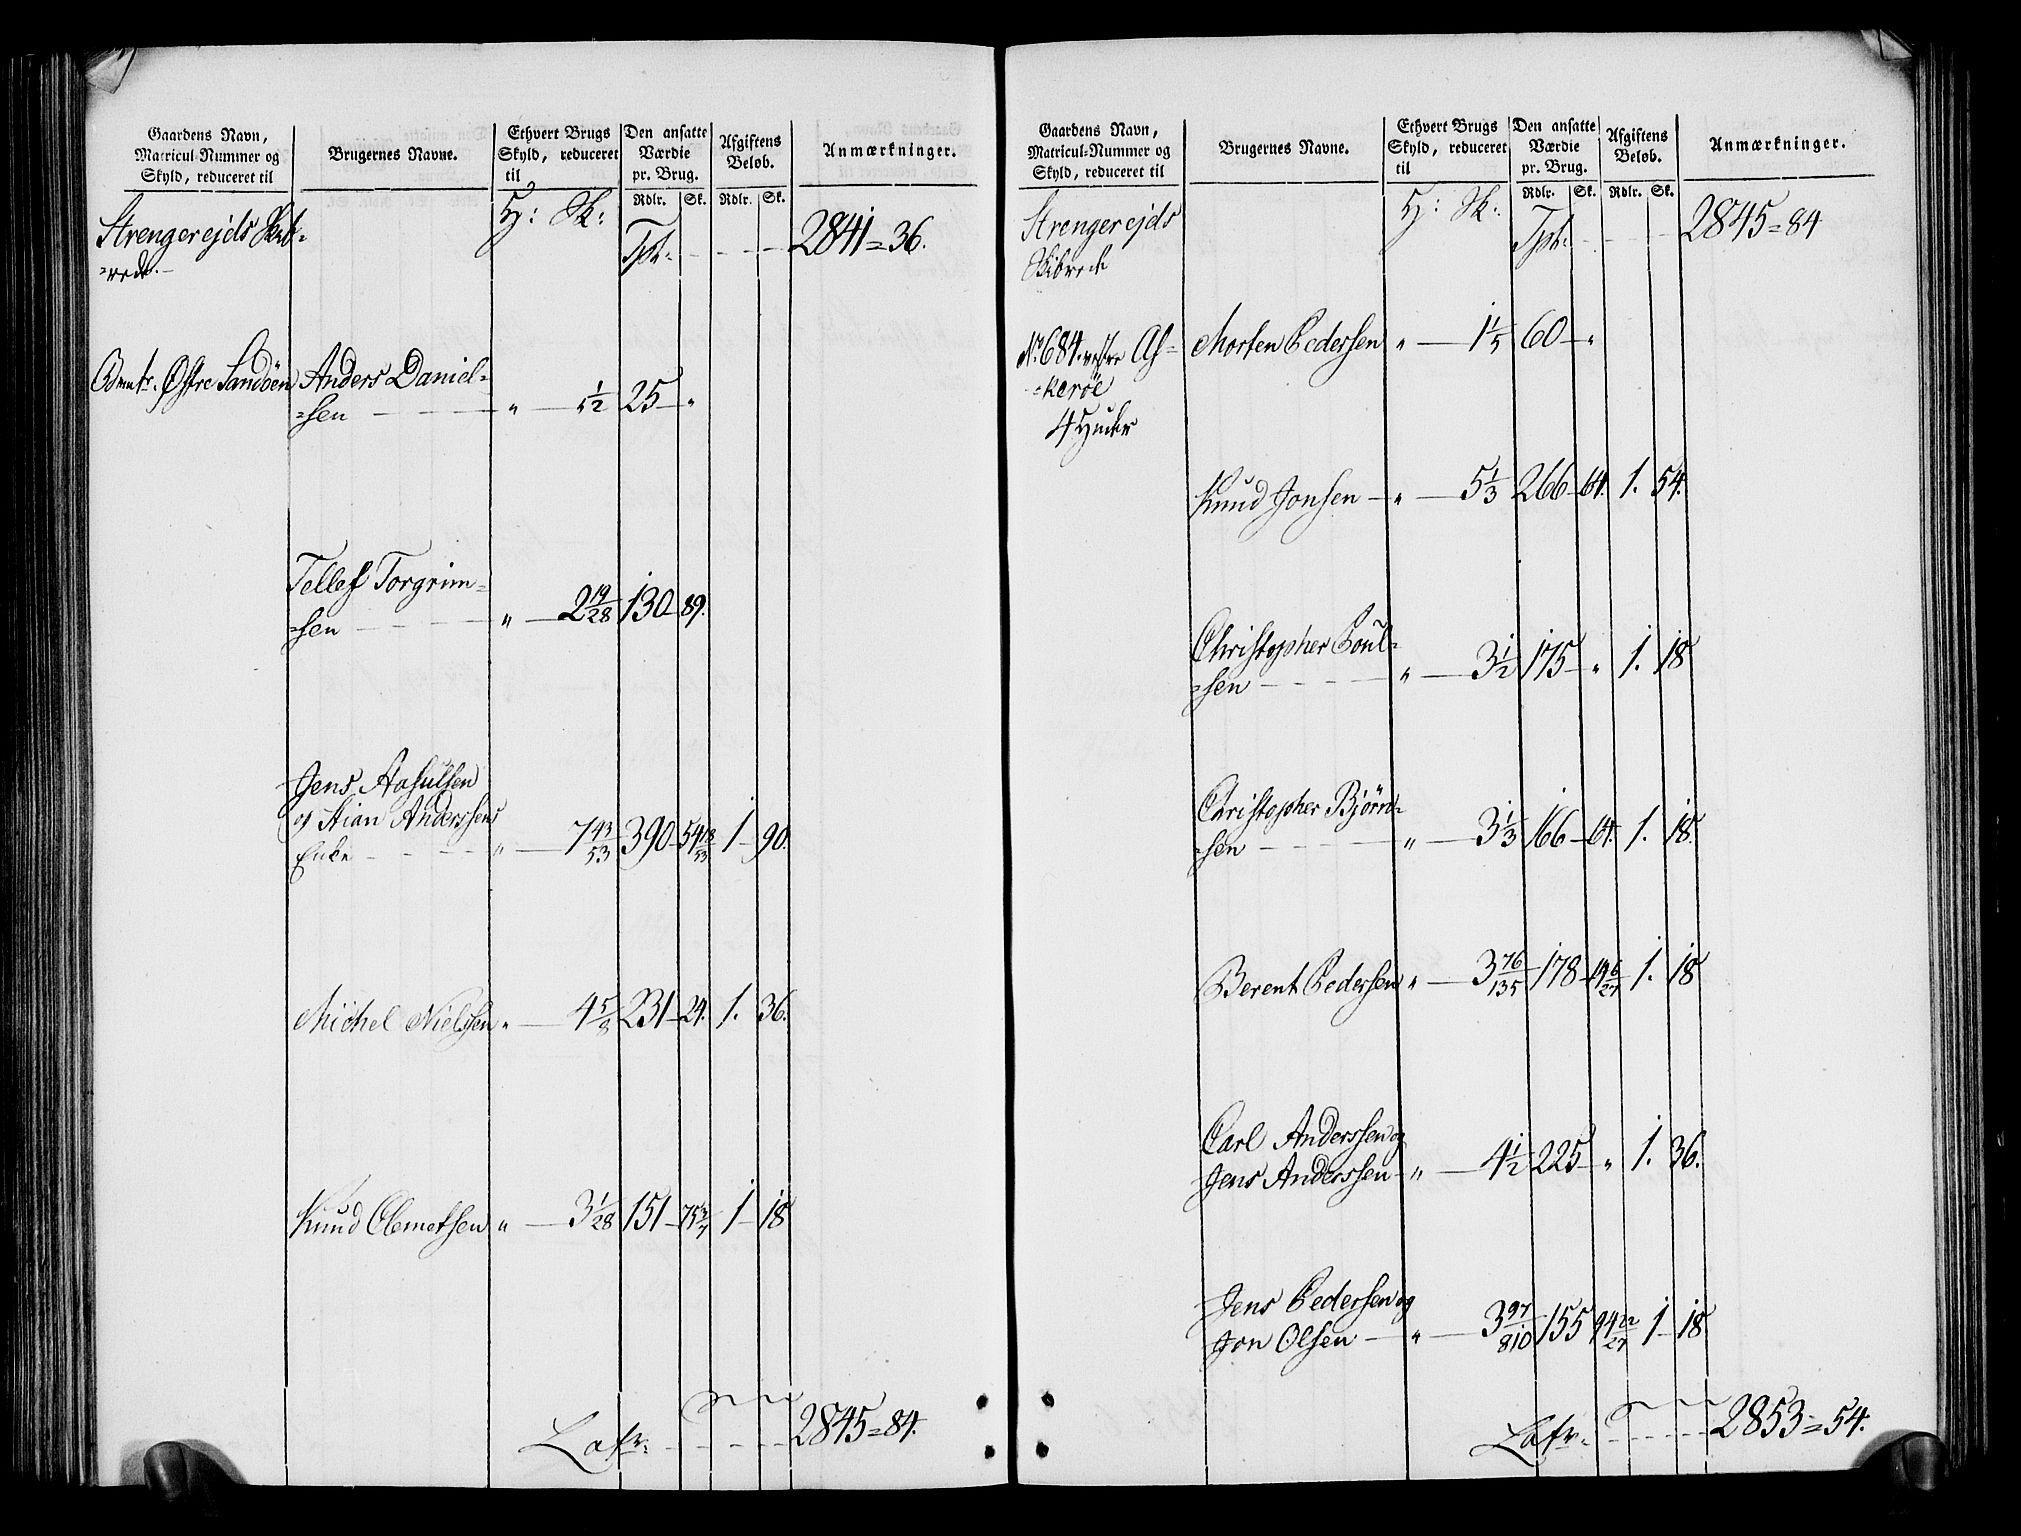 Gaardens Navn,
Matricul-Nummer og
Skyld, reduceret til
Brugernes Navne.
Ethvert Brugs
Skyld, reduceret
til
Den ansatte
Værdie
pr. Brug.
Afgiftens
Beløb.
Anmærkninger.
Rdlr. Sk. Rdlr. Sk.
H: Sk:
Strengerejds Skib-
-rede.
Tpt: 2841=36.
Østre Sandöen Anders Daniel-
-sen „ 1/2 25 „
Tellef Torgrim-
-sen „ 2 19/28 130 89.
Jens Aasulsen
og Stian Anderssens
Enke „ 7 43/53 390 54 18/53 1 90.
Michel Nielssen „ 4 5/8 231 24. 1. 36.
Knud Clemetsen „ 3 1/28 151 75 3/7 1 18
Lats. 2845=84.
Gaardens Navn,
Matricul-Nummer og
Skyld, reduceret til
Brugernes Navne.
Ethvert Brugs
Skyld, reduceret
til
Den ansatte
Værdie
pr. Brug.
Afgiftens
Beløb.
Anmærkninger.
Rdlr. Sk. Rdlr. Sk.
H: Sk:
Strengerejds
Skibrede
Tpt: 2845=84
No 684. vestre As- Morten Pedersen „ 1 1/5 60 „
-keröe
4 Huder
Knud Jonsen „ 5 1/3 266 64. 1. 54.
Christopher Poul-
-sen „ 3 1/2 175 „ 1. 18
Christopher Bjørn-
-sen „ 3 1/3 166 64. 1. 18.
Berent Pedersen „ 3 76/135 178 14 6/27 1. 18
Carl Anderssen og
Jens Anderssen „ 4 1/2 225 „ 1. 36.
Jens Pedersen og
Jon Olsen „ 3 97/810 155 94 22/27 1 18
Lats. 2853=54.